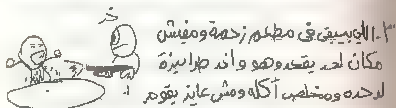 ٣- اللي بيبقى فى مطعم زحمة ومفيش
مكان لحد يقعد وهو واخد طرابيزة
لوحده ومخلص أكله ومش عايز يقوم